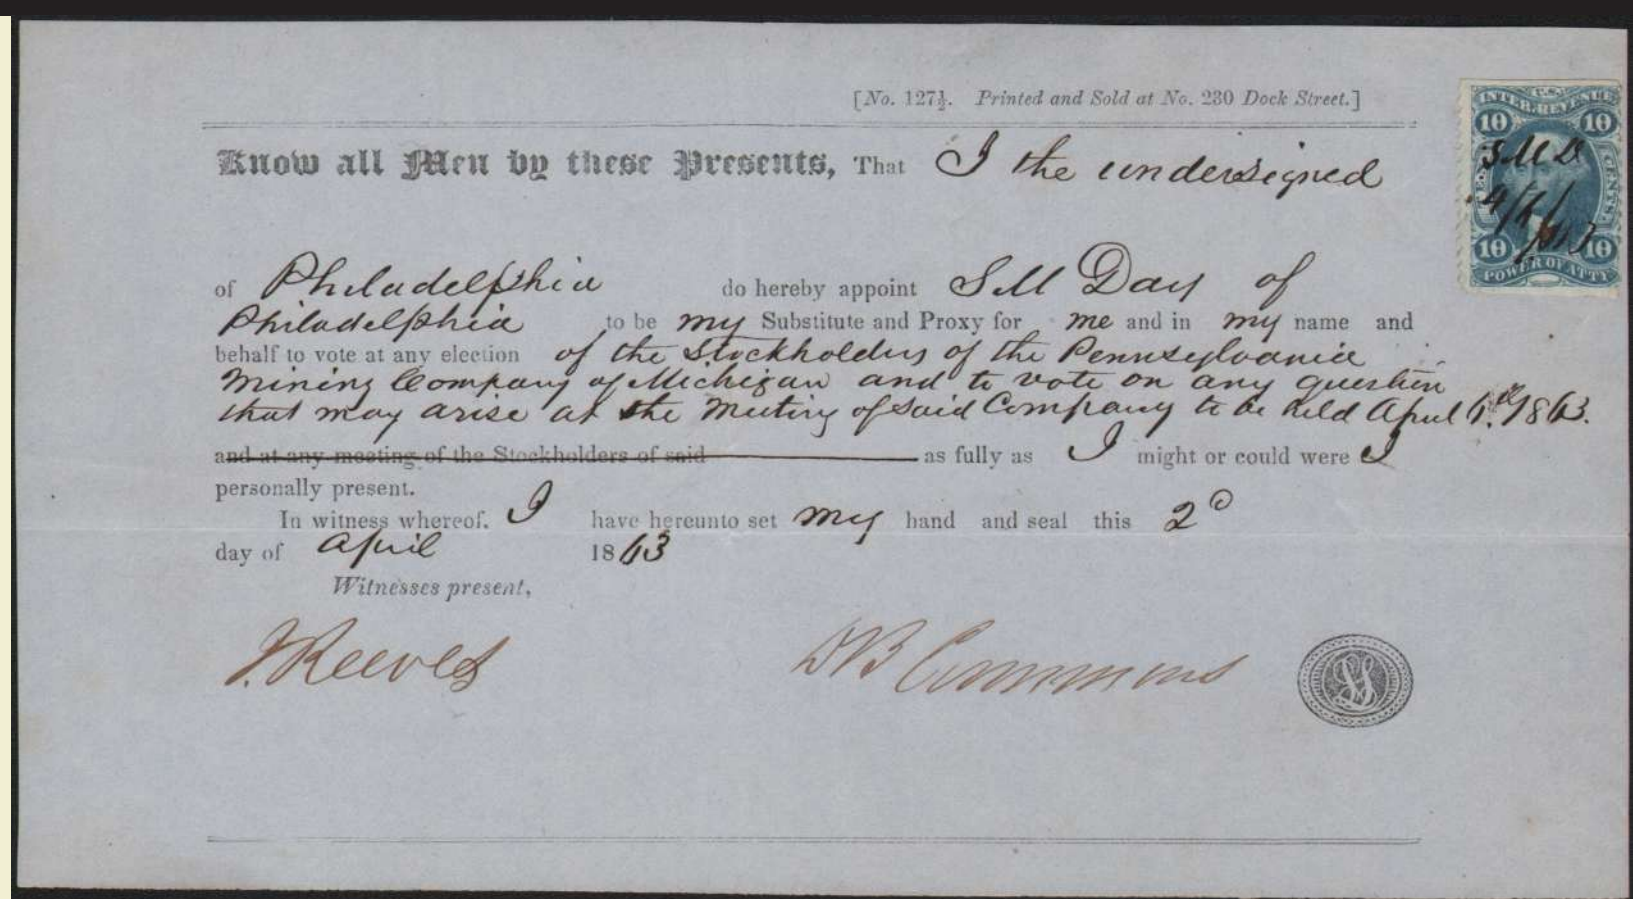 [No. 127½. Printed and Sold at No. 230 Dock Street.]
Know all Men by these Presents, That I the undersigned
of Philadelphia do hereby appoint S M Day of
Philadelphia to be my Substitute and Proxy for me and in my name and
behalf to vote at any election of the Stockholders of the Pennsylvania
Mining Company of Michigan and to vote on any question
that may arise at the Meeting of said Company to be held April 6th 1863.
and at any meeting of the Stockholders of said as fully as I might or could were I
personally present.
In witness whereof, I have hereunto set my hand and seal this 2d
day of April 1863
Witnesses present,
J. Reeves D B Cummins
U.S.
INTER. REVENUE
10 10
S M D
CENTS.
10 10
POWER OF ATT'Y
LS